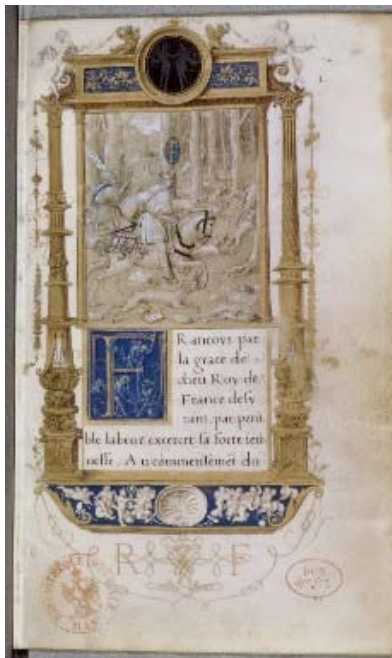 FRancoys par
la grace de
dieu Roy de
France desy
rant, par peni
ble labeur exercer sa forte ieu
nesse, Au commencemēt du
R F